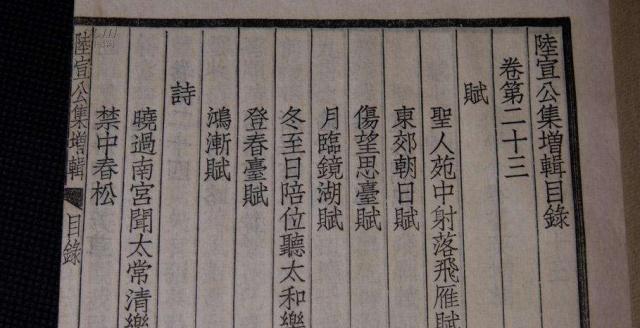 陸宣公集增輯目錄
卷第二十三
賦
聖人苑中射落飛雁賦
東郊朝日賦
傷望思臺賦
月臨鏡湖賦
冬至日陪位聽太和樂
登春臺賦
鴻漸賦
詩
曉過南宮聞太常清樂
禁中春松
陸宣公集增輯 目錄